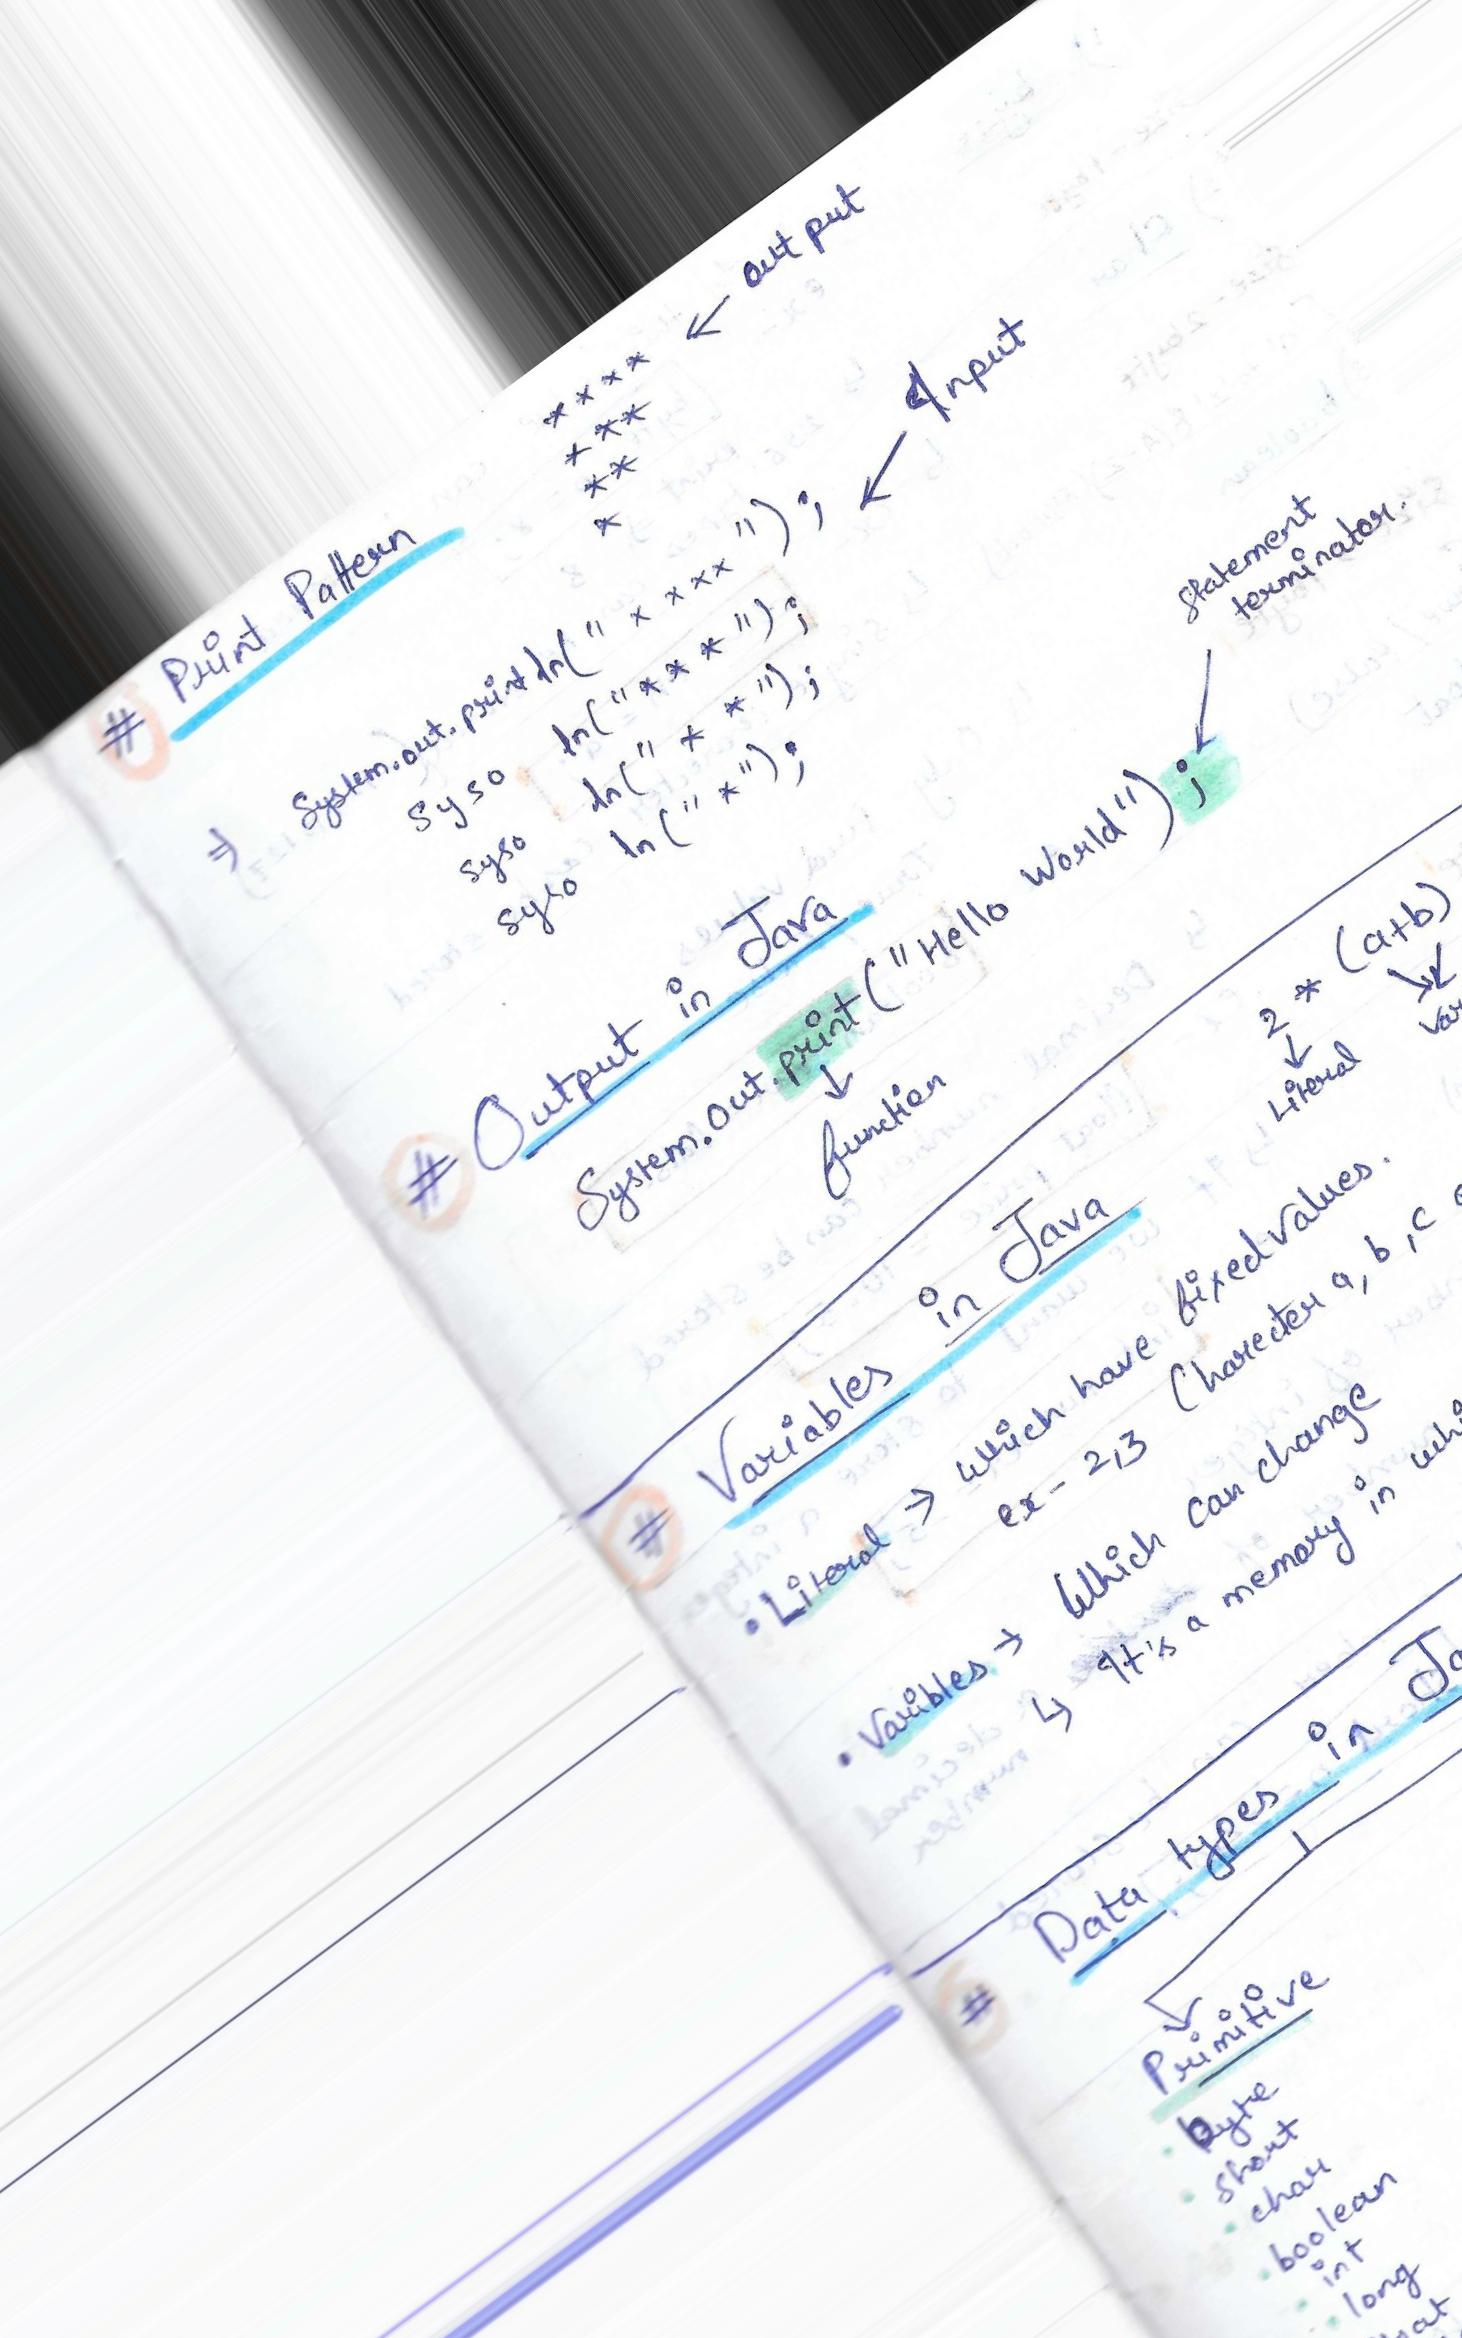 # Print Pattern
**** ← output
***
**
*
⇒ System.out.println("****"); ← Input
Syso ln("***");
Syso ln("**");
Syso ln("*");
# Output in Java
System.out.print("Hello World");
↓
function
statement
terminator.
# Variables in Java
2 * (a+b)
Literal
• Literal → which have fixed values.
ex- 2,3 Charecter a, b, c
• Variables → Which can change
↳ It's a memory in
# Data types in
Primitive
• byte
• short
• char
• boolean
• int
• long